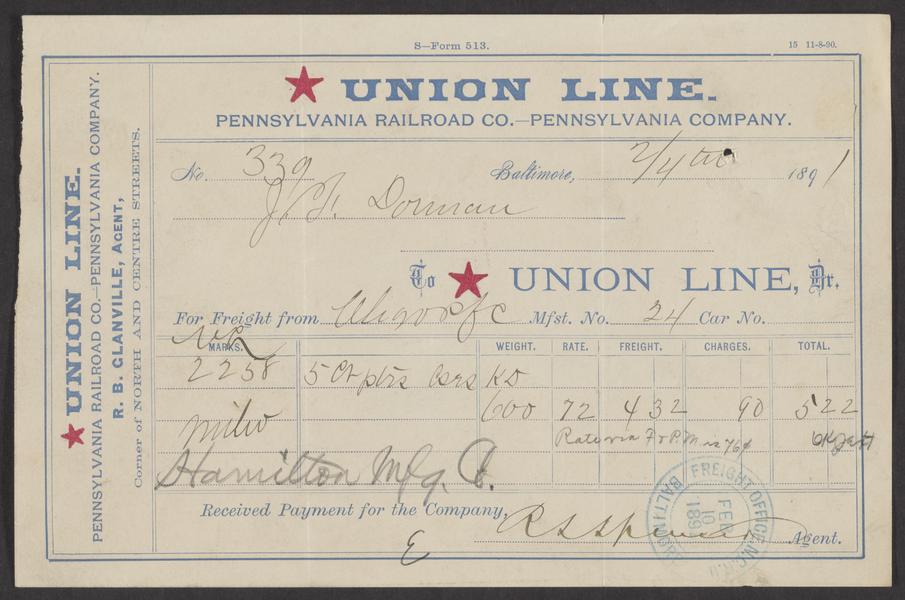 S—Form 513.
15 11-8-90.
UNION LINE.
PENNSYLVANIA RAILROAD CO.—PENNSYLVANIA COMPANY.
R. B. GLANVILLE, AGENT,
Corner of NORTH AND CENTRE STREETS.
UNION LINE.
PENNSYLVANIA RAILROAD CO.—PENNSYLVANIA COMPANY.
No. 339 Baltimore, 2/4th 1891
J. F. Dorman
To UNION LINE, Dr.
For Freight from Mfst. No. 24 Car No.
MARKS. WEIGHT. RATE. FREIGHT. CHARGES. TOTAL.
2258 5 Ct ptrs Cses KD
600 72 4 32 90 5 22
Rate via
Hamilton Mfg. Co.
Received Payment for the Company,
Agent.
E
FREIGHT OFFICE, N.C.R.R.
FEB
10
189
BALTIMORE